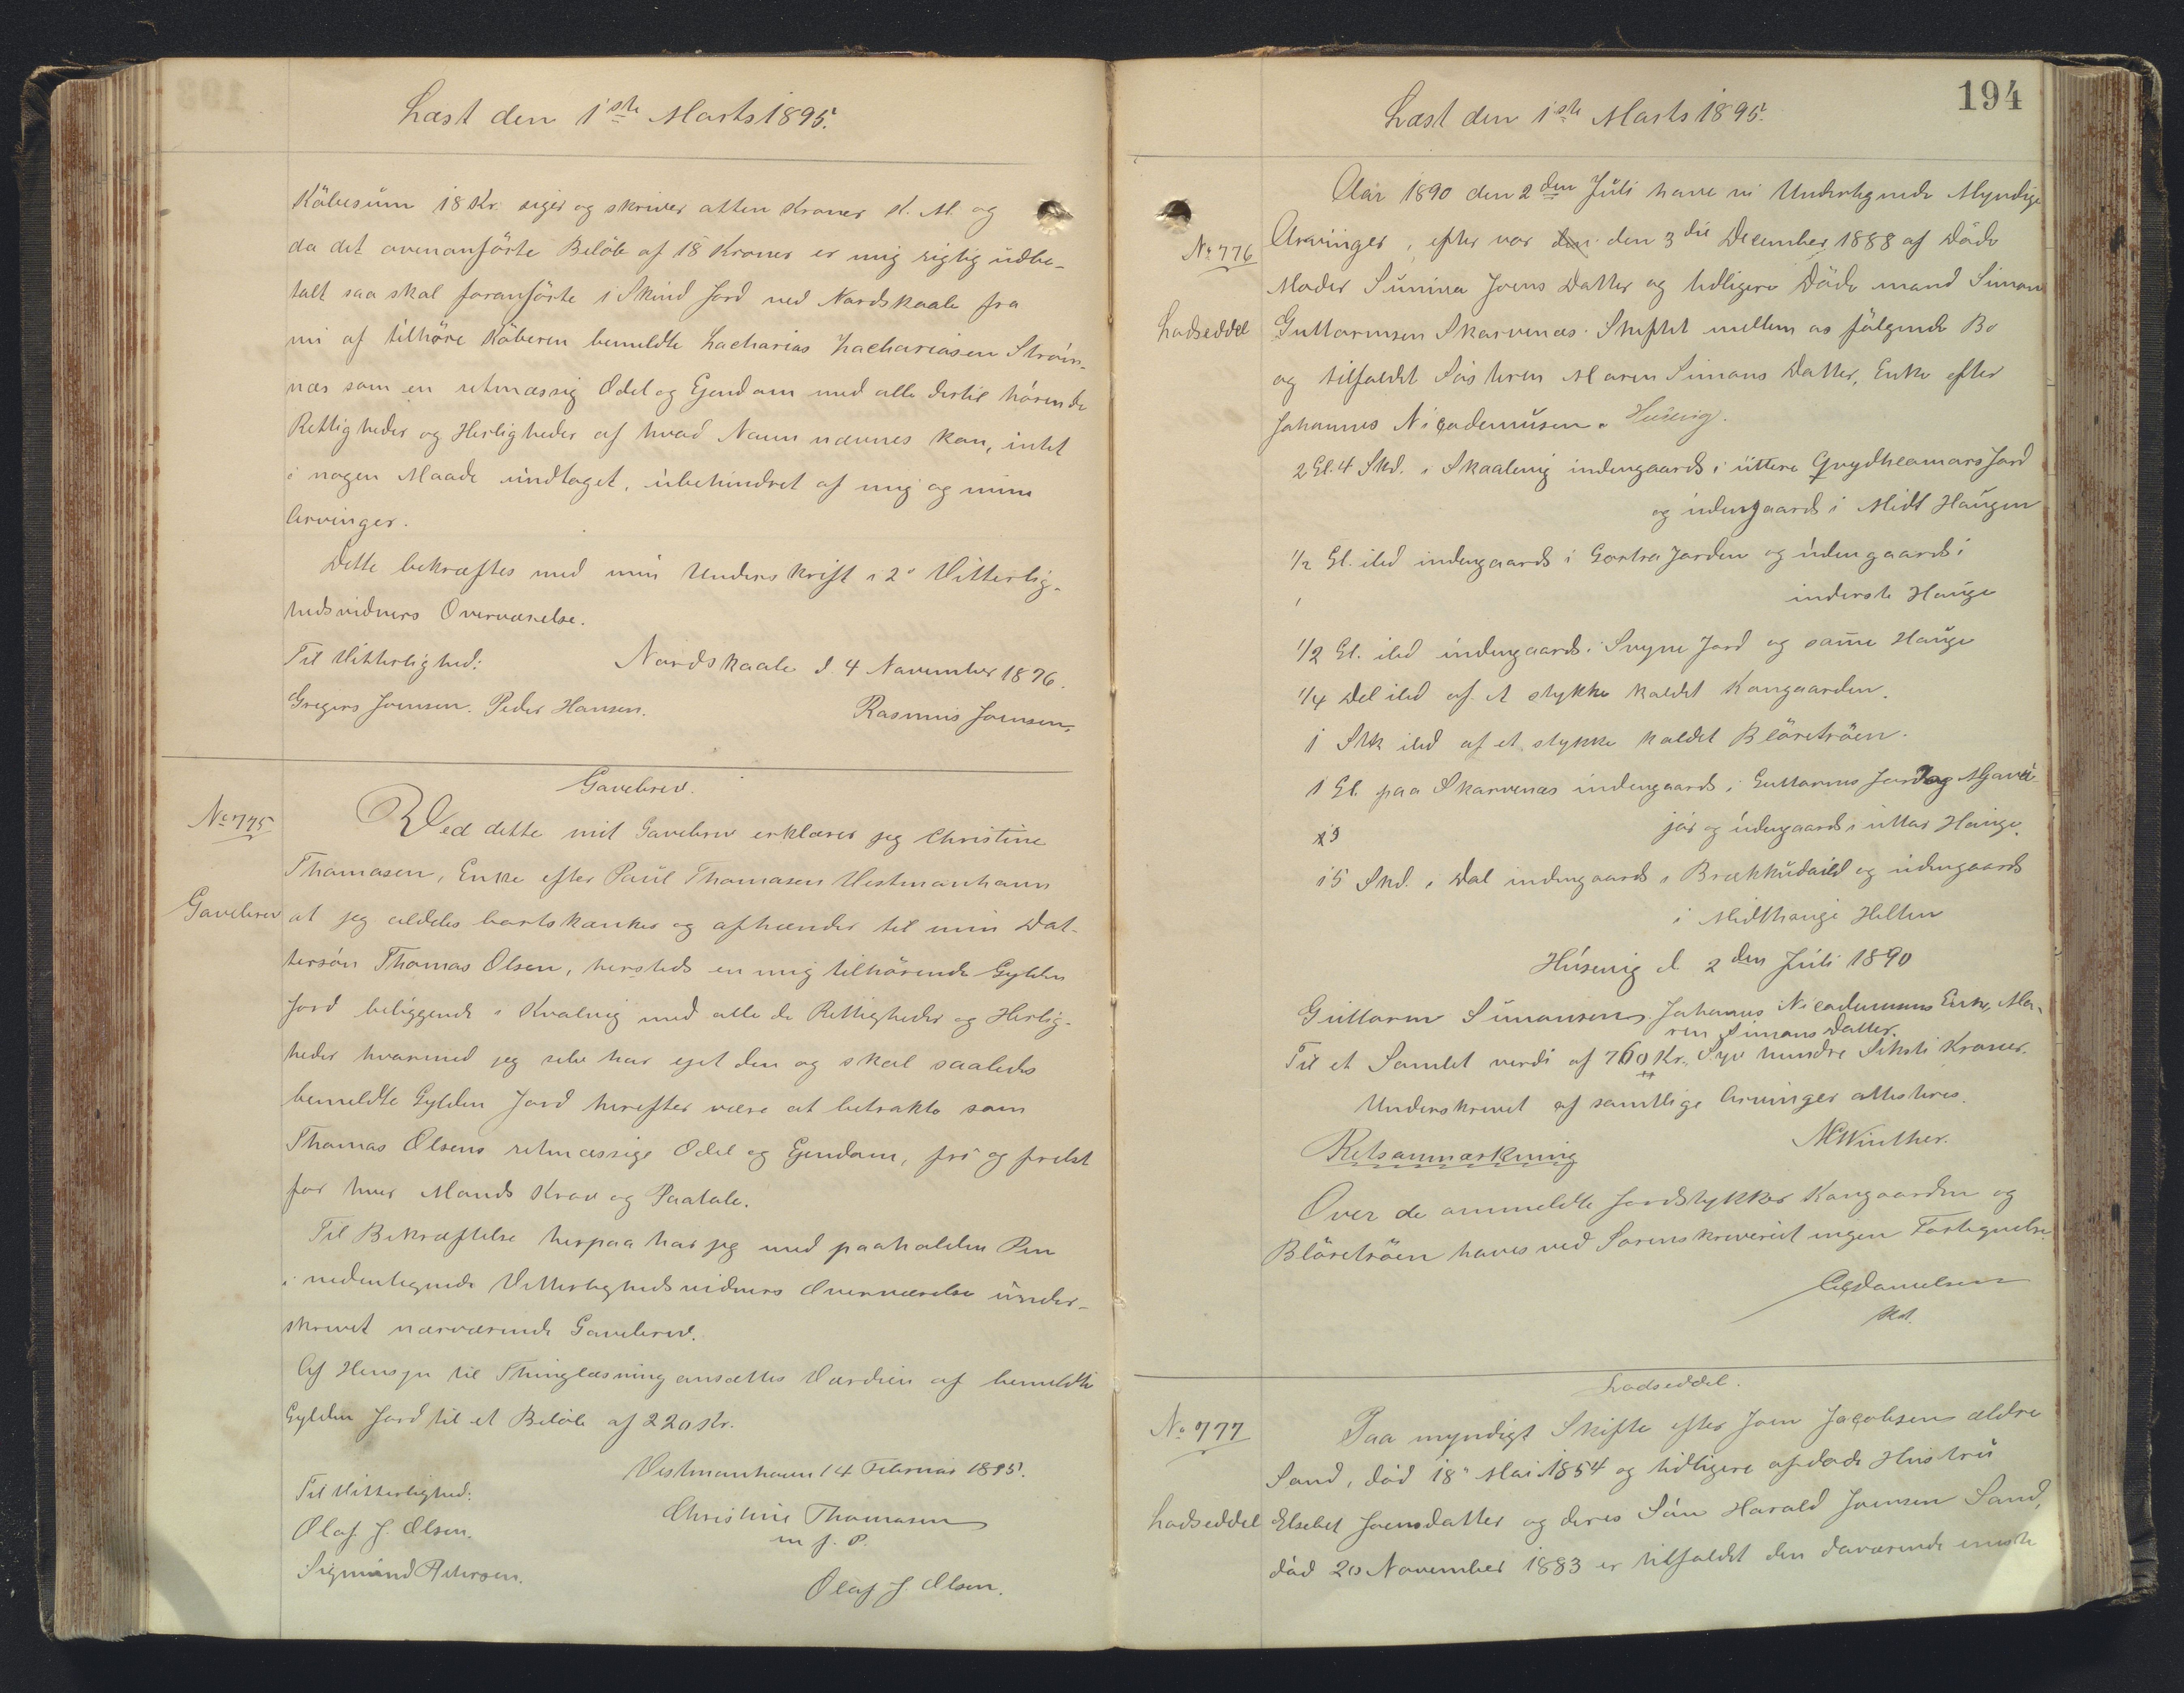 Læst den 1ste Marts 1895.
Köbesum 18 Kr. siger og skriver atten Kroner s. M. og
da det ovenanförte Belöb af 18 Kroner er mig rigtig udbe-
talt saa skal foranförte 1 Skind Jord ved Nordskaale fra
nu af tilhöre Köberen bemeldte Zacharias Zachariasen Ström-
næs som en retmæssig Odel og Ejendom med alle dertil hörende
Rettigheder og Herligheder af hvad Navn nævnes kan, intet
i nogen Maade undtaget, ubehindret af mig og mine
Arvinger.
Dette bekræftes med min Underskrift i 2de Vitterlig-
hedsvidners Overværelse.
Til Vitterlighed: Nordskaale d. 4 November 1876.
Gregers Joensen. Peder Hansen. Rasmus Joensen.
Gavebrev.
No 775
Ved dette mit Gavebrev erklærer jeg Christine
Thomasen, Enke efter Paul Thomasen Vestmanhavn
Gavebrev at jeg aldeles bortskænker og afhænder til min Dat-
tersön Thomas Olsen, hersteds en mig tilhörende Gylden
Jord beliggende i Kvalvig med alle de Rettigheder og Herlig-
heder hvormed jeg selv har ejet den og skal saaledes
bemeldte Gylden Jord herefter være at betrakte som
Thomas Olsens retmæssige Odel og Ejendom, fri og frelst
for hver Mands Krav og Paatale.
Til Bekræftelse herpaa har jeg med paaholden Pen
i nedentegnede Vitterlighedsvidners Overværelse under-
skrevet nærværende Gavebrev.
Af Hensyn til Thinglæsning ansættes Værdien af bemeldte
Gylden Jord til et Belöb af 220 Kr.
Vestmanhavn 14 Februar 1895.
Til Vitterlighed:
Christine Thomasen
Olaf J. Olsen. m. f. P.
Sigmund Petersen.
Olaf J Olsen.
194
Læst den 1ste Marts 1895.
Aar 1890 den 2den Juli have vi Undertegnede Myndige
No 776 Arvinger, efter vor den den 3die December 1888 af Döde
Moder Sunniva Joens Datter og tidligere Döde mand Simon
Lodseddel Guttormsen Skarvenæs. Skiftet mellem os fölgende Bo
og tilfaldt Sösteren Maren Simons Datter, Enke efter
Johannes Nicodemusen. Husevig.
2 Gl. 4 Skd. i Skaalevig indengaards i üttere Jord
og udengaards i Midt Haugen
1/2 Gl. iled indengaards i Gortra Jorden og udengaards i
inderste Hauge
1/2 Gl. iled indengaards i Jord og same Hauge
1/4 Del iled af et stykke kaldet Kongaarden.
1 Stk iled af et stykke kaldet Blöretröen.
1 Gl. paa Skarvenæs indengaards i Guttorms Jord og
jör og udengaards i uttar Hauge.
15 Skd. i Dal indengaards i Brekkudaild og udengaards
i Midthauge Helten
Húsevig d 2den Juli 1890
Guttorm Simonsen. Johannes Nicodemusens Enke, Ma-
ren Simons Datter.
Til et Samlet verdi af 760 Kr. Syv hundre Siksti Kroner.
Underskrevet af samtlige Arvinger attesteres.
Winther.
Retsanmærkning
Over de anmeldte Jordstykker Kongaarden og
Blöretröen haves ved Sorenskriveriet ingen Fortegnelse.
Danielsen
kst.
Lodseddel.
No 777 Paa myndigt Skifte efter Joen Jacobsen ældre
Sand, död 18 Mai 1854 og tidligere afdöde Hustru
Lodseddel Elsebet Joensdatter og deres Sön Harald Joensen Sand,
död 20 November 1883 er tilfaldet den daværende eneste